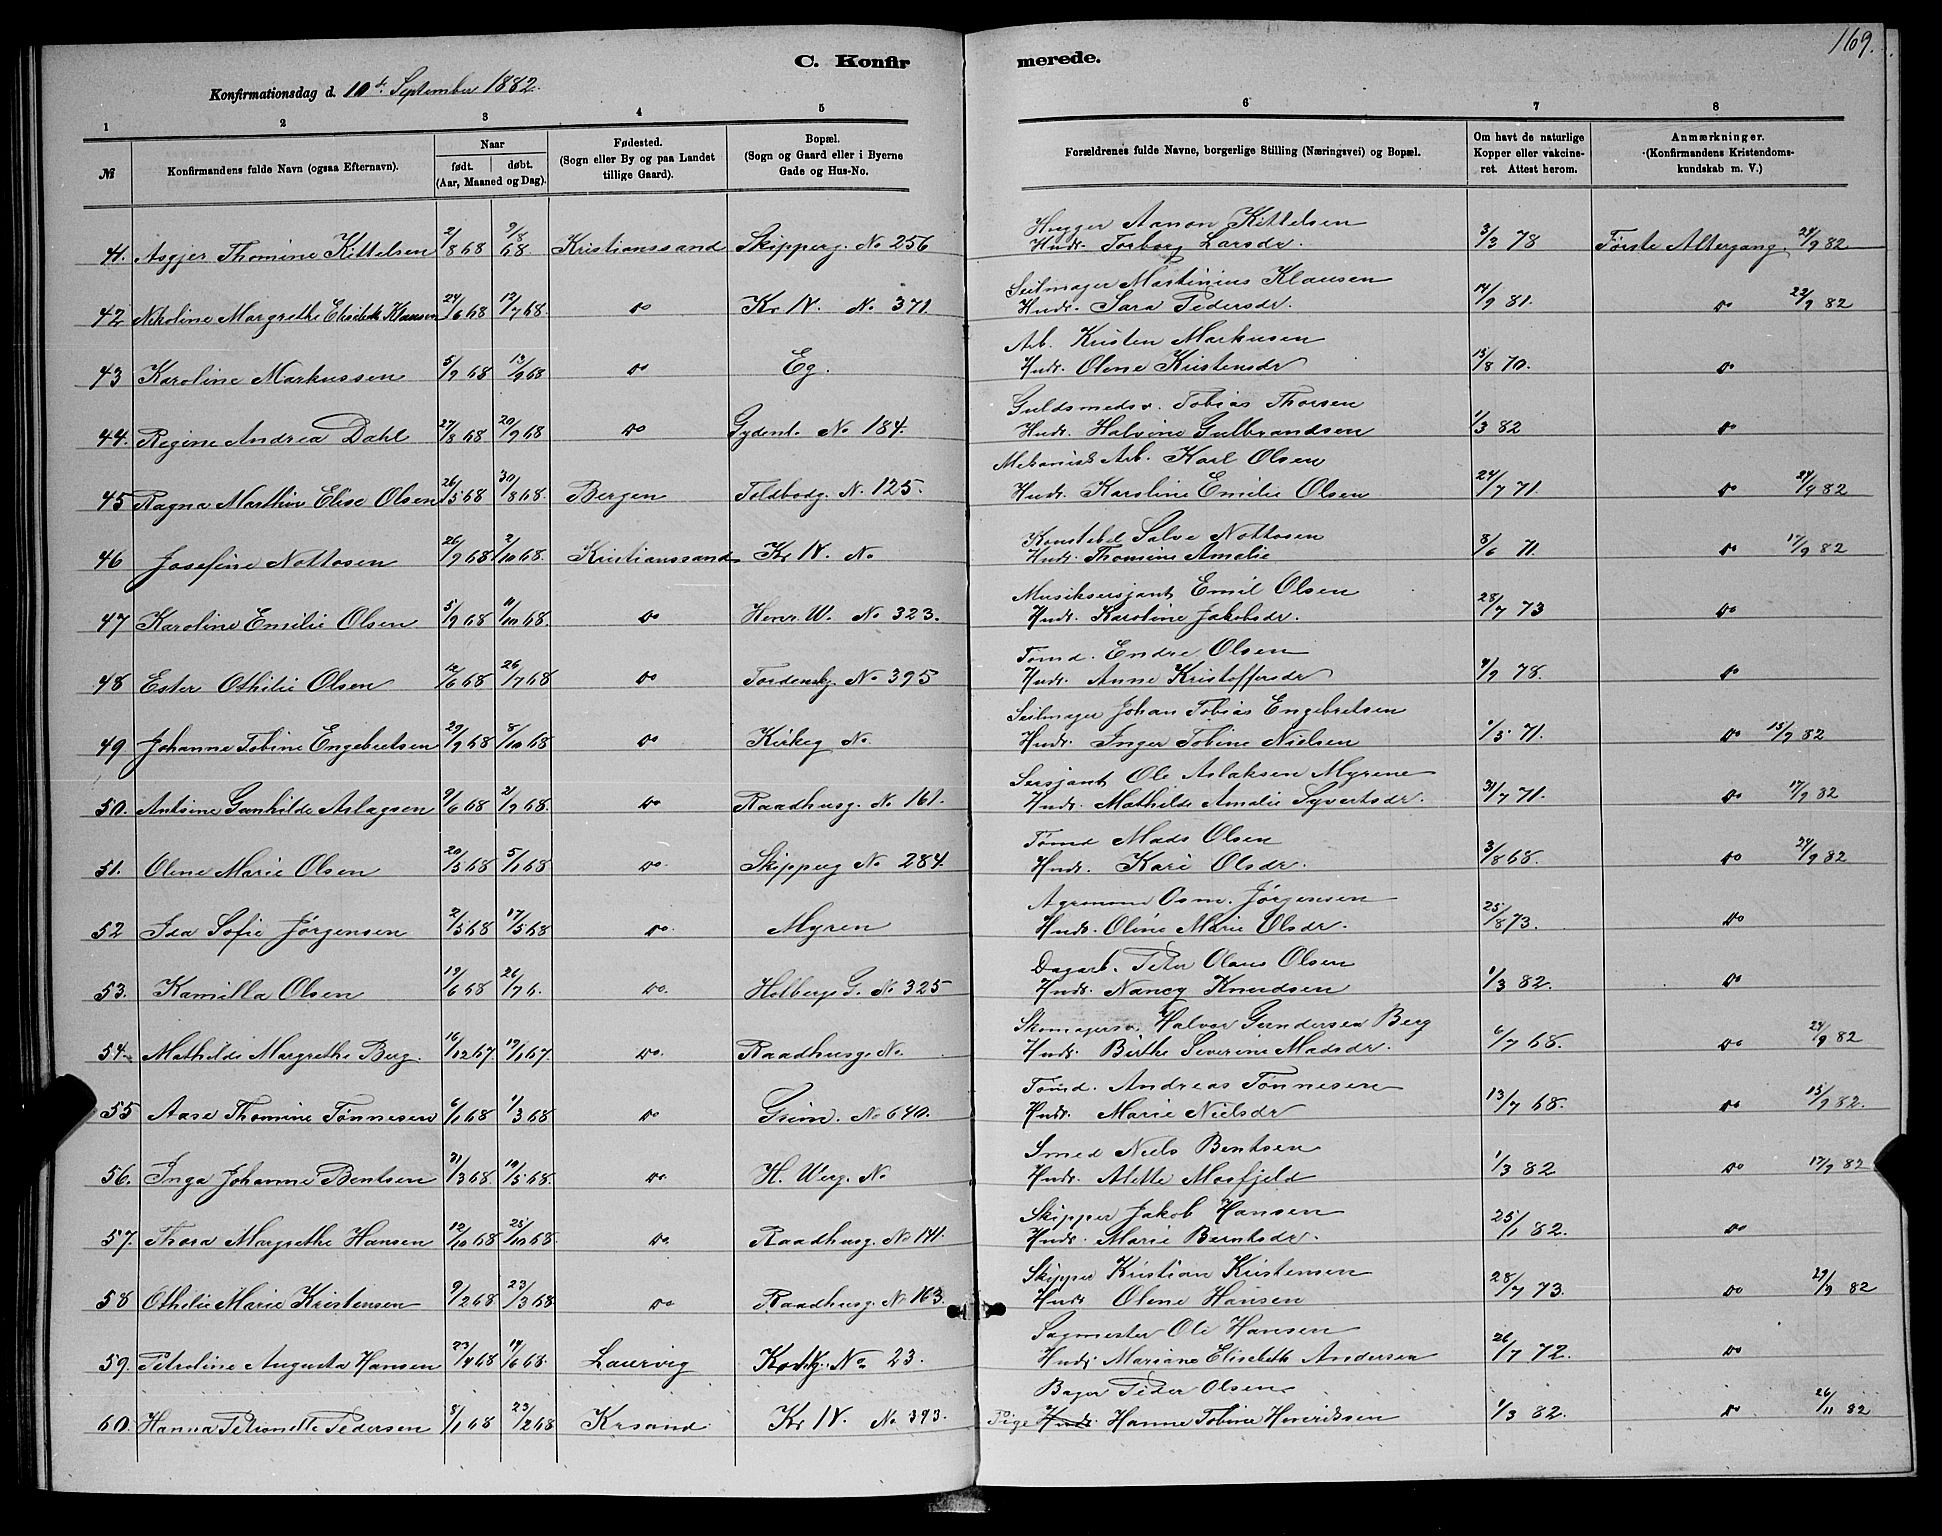 C. Konfir merede.
169.
Konfirmationsdag d. 10d. September 1882.
1 2 3 4 5 6 7 8
№ Konfirmandens fulde Navn (ogsaa Efternavn). Naar født. døbt. (Aar, Maaned og Dag). Fødested. (Sogn eller By og paa Landet tillige Gaard). Bopæl. (Sogn og Gaard eller i Byerne Gade og Hus-No. Forældrenes fulde Navne, borgerlige Stilling (Næringsvei) og Bopæl. Om havt de naturlige Kopper eller vakcineret. Attest herom. Anmærkninger. (Konfirmandens Kristendomskundskab m. V.)
Hugger Aanon Kittelsen
41. Asgjer Thomine Kittelsen 2/8 68 9/8 68 Kristianssand Skipperg. No 256 Hudr. Torborg Larsdr. 3/3 78 Første Altergang. 24/9 82
Seilmager Martinius Klausen
42 Nikoline Margrethe Elisabeth Klausen 24/6 68 12/7 68. do Kr IV. No 371. Hudr. Sara Pedersdr. 14/9 81. do 23/9 82
Arb. Kristen Markusen
43 Karoline Markussen 5/9 68 13/9 68 do Eg. Hudr. Olene Kristensdr 15/8 70. do
Guldsmedsv. Tobias Thorsen
44. Regine Andrea Dahl 27/8 68 20/9 68 do Gydent. No 184. Hudr. Halvine Gulbrandsen 1/3 82 do
Mekanisk Arb. Karl Olsen
45 Ragna Marthine Elise Olsen 26/5 68 30/8 68. Bergen Toldbodg. No. 125. Hudr. Karoline Emilie Olsen 24/7 71. do 24/9 82
Konstabel Salve Nottosen
46 Josefine Nottosen 26/9 68 2/10 68. Kristianssand Kr IV. No Hudr. Thomine Amalie 3/6 71. do 17/9 82
Musiksersjant Emil Olsen
47 Karoline Emilie Olsen 5/9 68 11/10 68. do Henr. W. No 323. Hudr. Karoline Jakobsdr. 28/7 73 do
Tømd. Endre Olsen
48 Ester Othilie Olsen 12/6 68 26/7 68 do Tordenskj. No 395 Hudr. Anne Kristoffersdr 9/9 78. do
Seilmager Johan Tobias Engebretsen
49 Johanne Tobine Engebretsen 29/9 68 8/10 68 do Kirkeg No Hudr. Inger Tobine Nielsen 1/5 71. do 15/9 82
Sersjant Ole Aslaksen Myrene
50. Antsine Gunhilde Aslagsen 9/6 68 21/9 68. do Raadhusg. No 161. Hudr. Mathilde Amalie Syvertsdr. 31/7 71. do 17/9 82
Tømd Mads Olsen
51. Olene Marie Olsen 20/3 68 5/1 68 do Skipperg No 284. Hudr. Kari Olsdr. 3/8 68. do 24/9 82
Agronom Osm. Jørgensen
52 Ida Sofie Jørgensen 2/3 68 17/5 68 do. Myren Hudr. Oline Marie Olsdr. 25/8 73. do
Dagarb. Peter Olaus Olsen
53. Kamilla Olsen 19/6 68 26/7 6. do. Holbergs G. No 325 Hudr. Nancy Knudsen 1/3 82. do
Skomagersv. Halvor Gundersen Berg
54. Mathilde Margrethe Berg. 16/12 67 19/1 67. do. Raadhusg. No. Hudr. Birthe Severine Madsdr. 6/7 68. do 24/9 82
Tømd. Andreas Tønnesen
55 Aase Thomine Tønnesen 6/1 68 1/3 68 do Grim. No 640. Hudr. Marie Nielsdr 13/7 68. do 15/9 82.
Smed Niels Bentsen
56. Inga Johanne Bentsen 21/3 68. 10/5 68. do. H. Werg. No Hudr. Alette Mosfjeld 1/3 82 do 17/9 82
Skipper Jakob Hansen
57. Thora Margrethe Hansen 12/10 68 25/10 68. do. Raadhusg. No 141. Hudr. Marie Berntsdr. 25/1 82. do
Skipper Kristian Kristensen
58 Othilie Marie Kristensen 9/2 68 23/3 68 do. Raadhusg. No 163. Hudr Olene Hansen 28/7 73. do 29/9 82
Sagmester Ole Hansen
59. Petroline Augusta Hansen 23/4 68 14/6 68. Laurvig No 23. Hudr. Mariane Elisabeth Andersen 26/7 72. do
Bager Peder Olsen
60. Hanna Petronette Pedersen 8/1 68 23/2 68 Krsand Kr IV. No 393. Pige Hudr. Hanne Tobine Henriksen 1/3 82. do 26/11 82